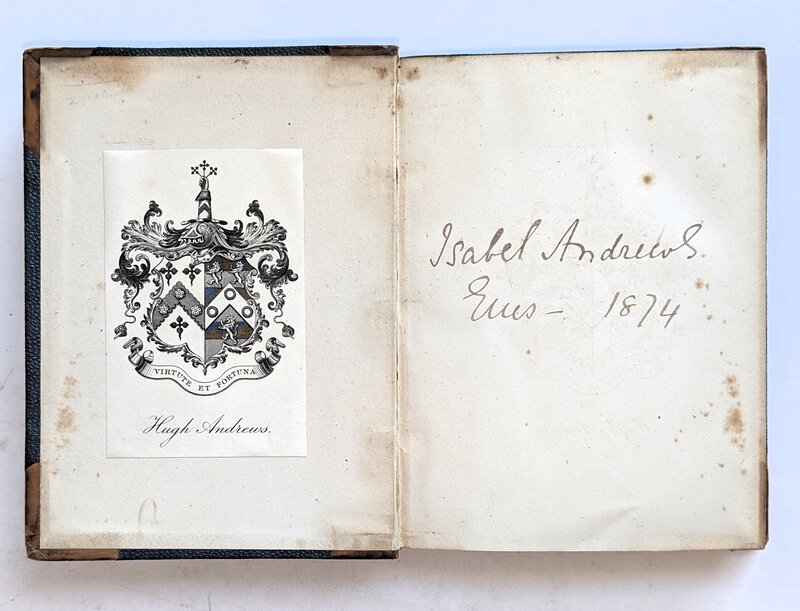 VIRTUTE ET FORTUNA
Hugh Andrews.
Isabel Andrews.
Ems – 1874